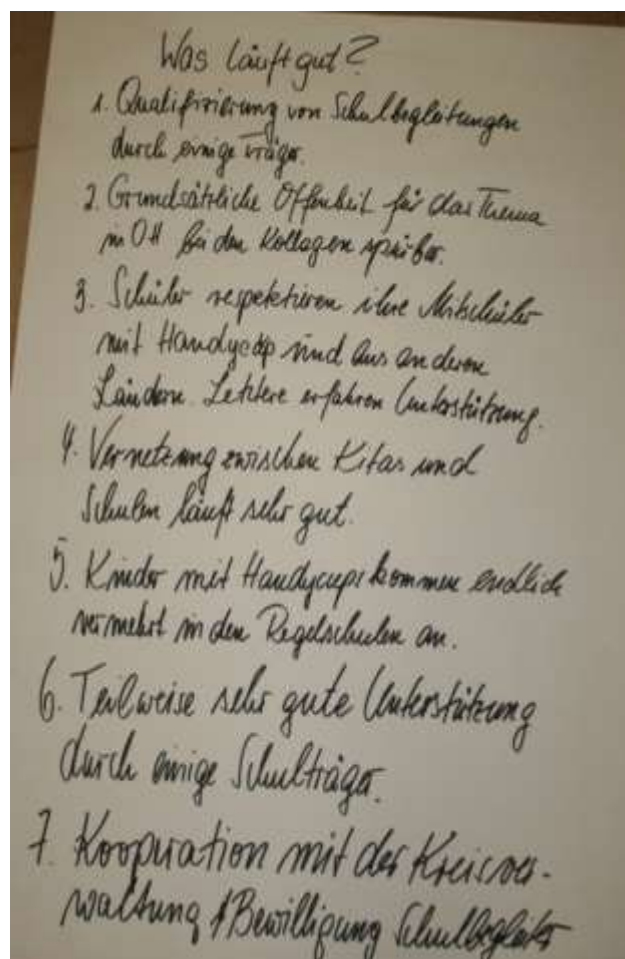 Was läuft gut?
1. Qualifizierung von Schulbegleitungen
durch einige Träger.
2. Grundsätzliche Offenheit für das Thema
in OH bei den Kollegen spürbar.
3. Schüler respektieren ihre Mitschüler
mit Handycap und aus anderen
Ländern. Letztere erfahren Unterstützung.
4. Vernetzung zwischen Kitas und
Schulen läuft sehr gut.
5. Kinder mit Handycaps kommen endlich
vermehrt in den Regelschulen an.
6. Teilweise sehr gute Unterstützung
durch einige Schulträger.
7. Kooperation mit der Kreisver-
waltung / Bewilligung Schulbegleiter